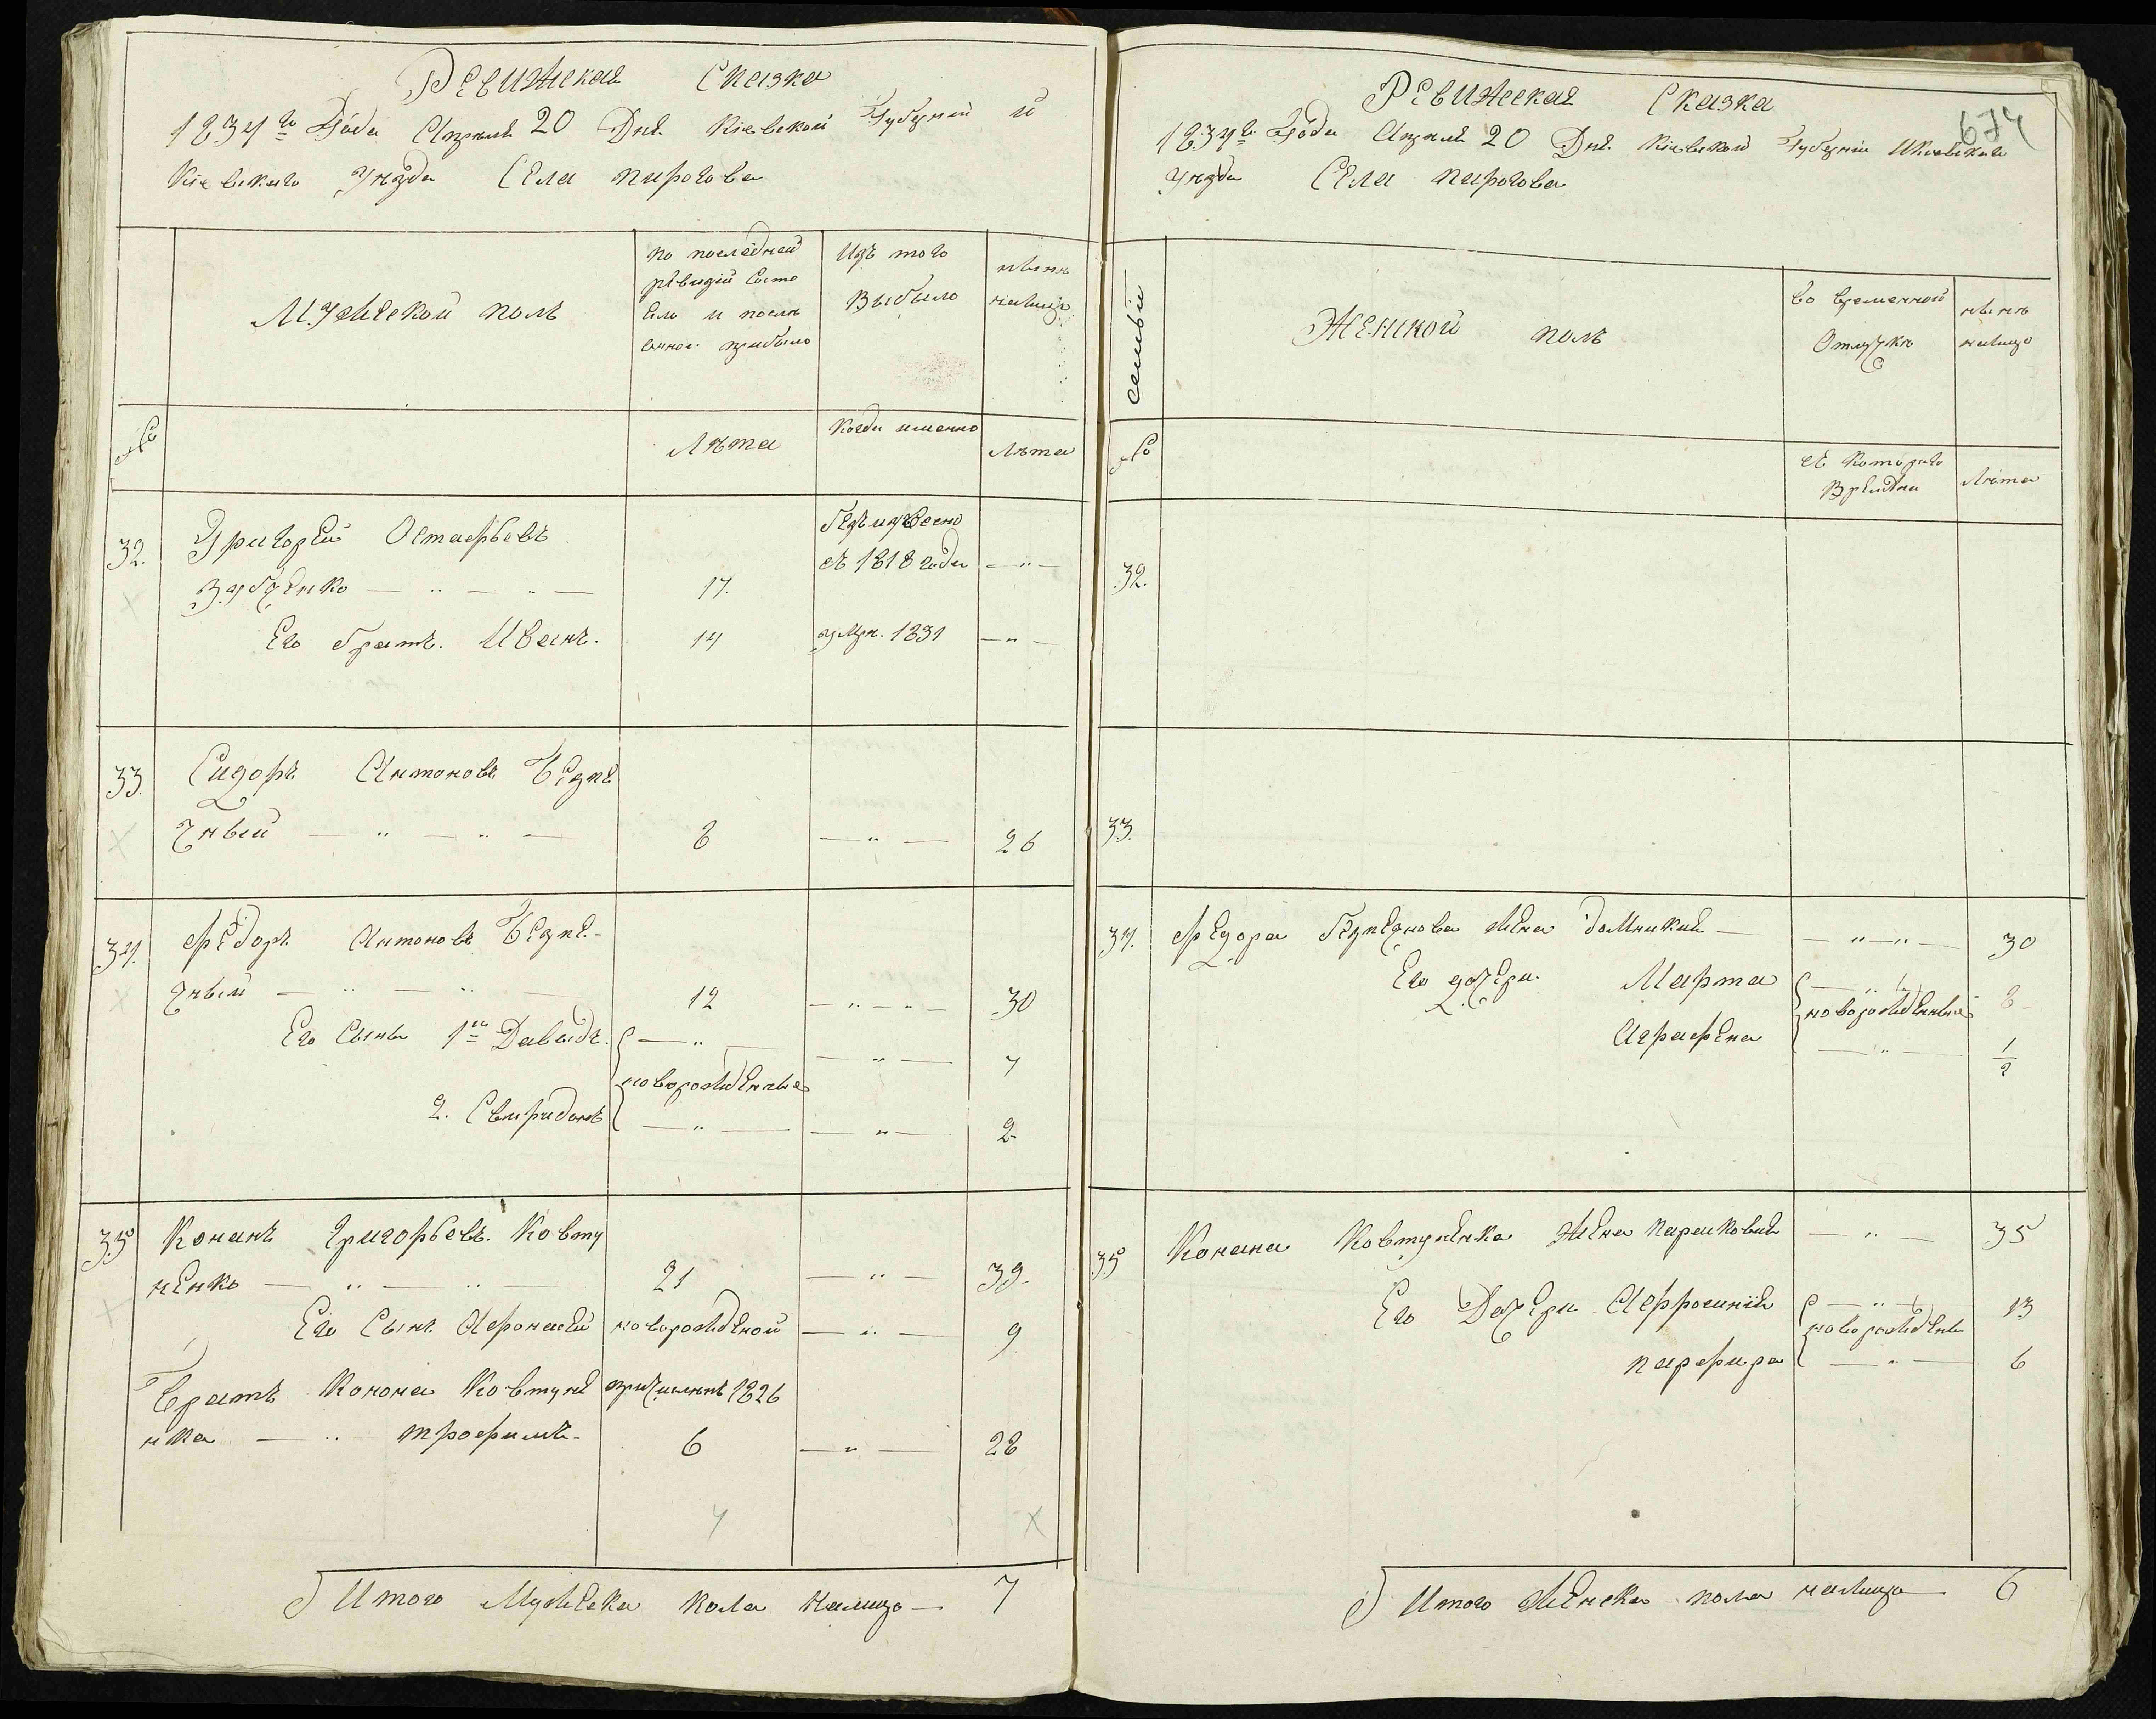 Ревижская Сказка
1834го Года Апреля 20 Дня Кіевской Губерніи и
Кіевскаго Уезда Села пирогова
Мужеской полъ
по последней
ревизіи состо
яло и после
оной прибыло
Изъ того
Выбыло
ныне
налицо
№
Лета
Когда именно
Лета
32.
Григорей Остафьевъ
Зубченко
17.
безъизвесно
съ 1818 года
Его братъ. Иванъ.
14
умре. 1831
33.
Сидоръ Антоновъ Безпе
чный
8
26
34.
Федоръ Антоновъ Безпе-
чный
12
30
Его Сыны 1й Давыдъ.
новорожденные
7
2. Свиридонъ
2
35
Конанъ Григорьевъ. Ковту
ненко
21
39.
Его Сынъ Афонасей
новорожденой
9
Братъ Конона Ковтуне
причисленъ 1826
нка трофимъ-
6
28
Итого Мужеска пола налицо 7
Ревижская Сказка
674
1834го Года Апреля 20 Дня Кіевской Губерніи Икіевскаго
Уезда Села пирогова
семьи
Женской полъ
во временной
Отлучке
ныне
налицо
№
съ Котораго
Времени
Лета
32.
33.
34.
Федора безпечнова жена домникия
30
Его дочери Марта
новорожденные
8
Аграфена
1/2
35
Конана Ковтуненка жена парасковия
35
Его Дочери Афросинія
новорожденые
13
парфира
6
Итого женска пола налицо 6